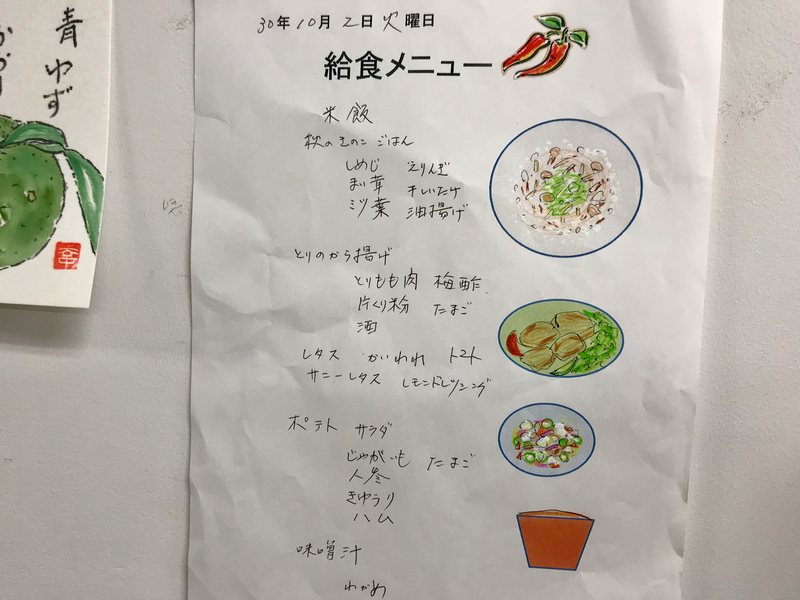 青ゆず
かおり
30年10月2日火曜日
給食メニュー
米飯
秋のきのこごはん
しめじ えりんぎ
まい茸 干しいたけ
三ツ葉 油揚げ
とりのから揚げ
とりもも肉 梅酢
片くり粉 たまご
酒
レタス かいわれ トマト
サニーレタス レモンドレッシング
ポテトサラダ
じゃがいも たまご
人参
きゅうり
ハム
味噌汁
わかめ